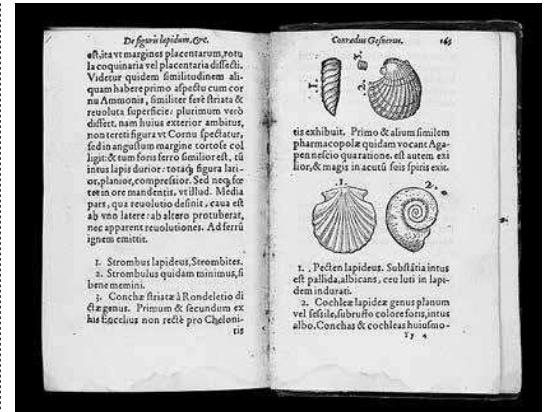 De figuris lapidum, &c.
est, ita vt margines placentarum, rotu
la coquinaria vel placentaria dissecti.
Videtur quidem similitudinem ali-
quam habere primo aspectu cum cor
nu Ammonis, similiter ferè striata &
reuoluta superficie: plurimum verò
differt. nam huius exterior ambitus,
non tereti figura vt Cornu spectatur,
sed in angustum margine tortose col
ligit: & tum foris ferro similior est, tū
intus lapis durior: totaq́; figura lati-
or, planior, compressior. Sed neq; fœ
tet in ore mandentis, vt illud. Media
pars, qua reuolutio definit, caua est
ab vno latere: ab altero protuberat,
nec apparent reuolutiones. Ad ferrū
ignem emittit.
1. Strombus lapideus, Strombites.
2. Strombulus quidam minimus, si
bene memini.
3. Conchæ striatæ à Rondeletio di
ctæ genus. Primum & secundum ex
his Encelius non rectè pro Cheloni-
tis
Conradus Gesnerus. 165
1. 2.
tis exhibuit. Primo & alium similem
pharmacopolæ quidam vocant Aga-
pen nescio qua ratione. est autem exi
lior, & magis in acutū seis spiris exit.
1. 2.
1. Pecten lapideus. Substātia intus
est pallida, albicans, ceu luti in lapi-
dem indurati.
2. Cochleæ lapideæ genus planum
vel sessile, subruffo colore foris, intus
albo. Conchas & cochleas huiusmo-
Yy 4